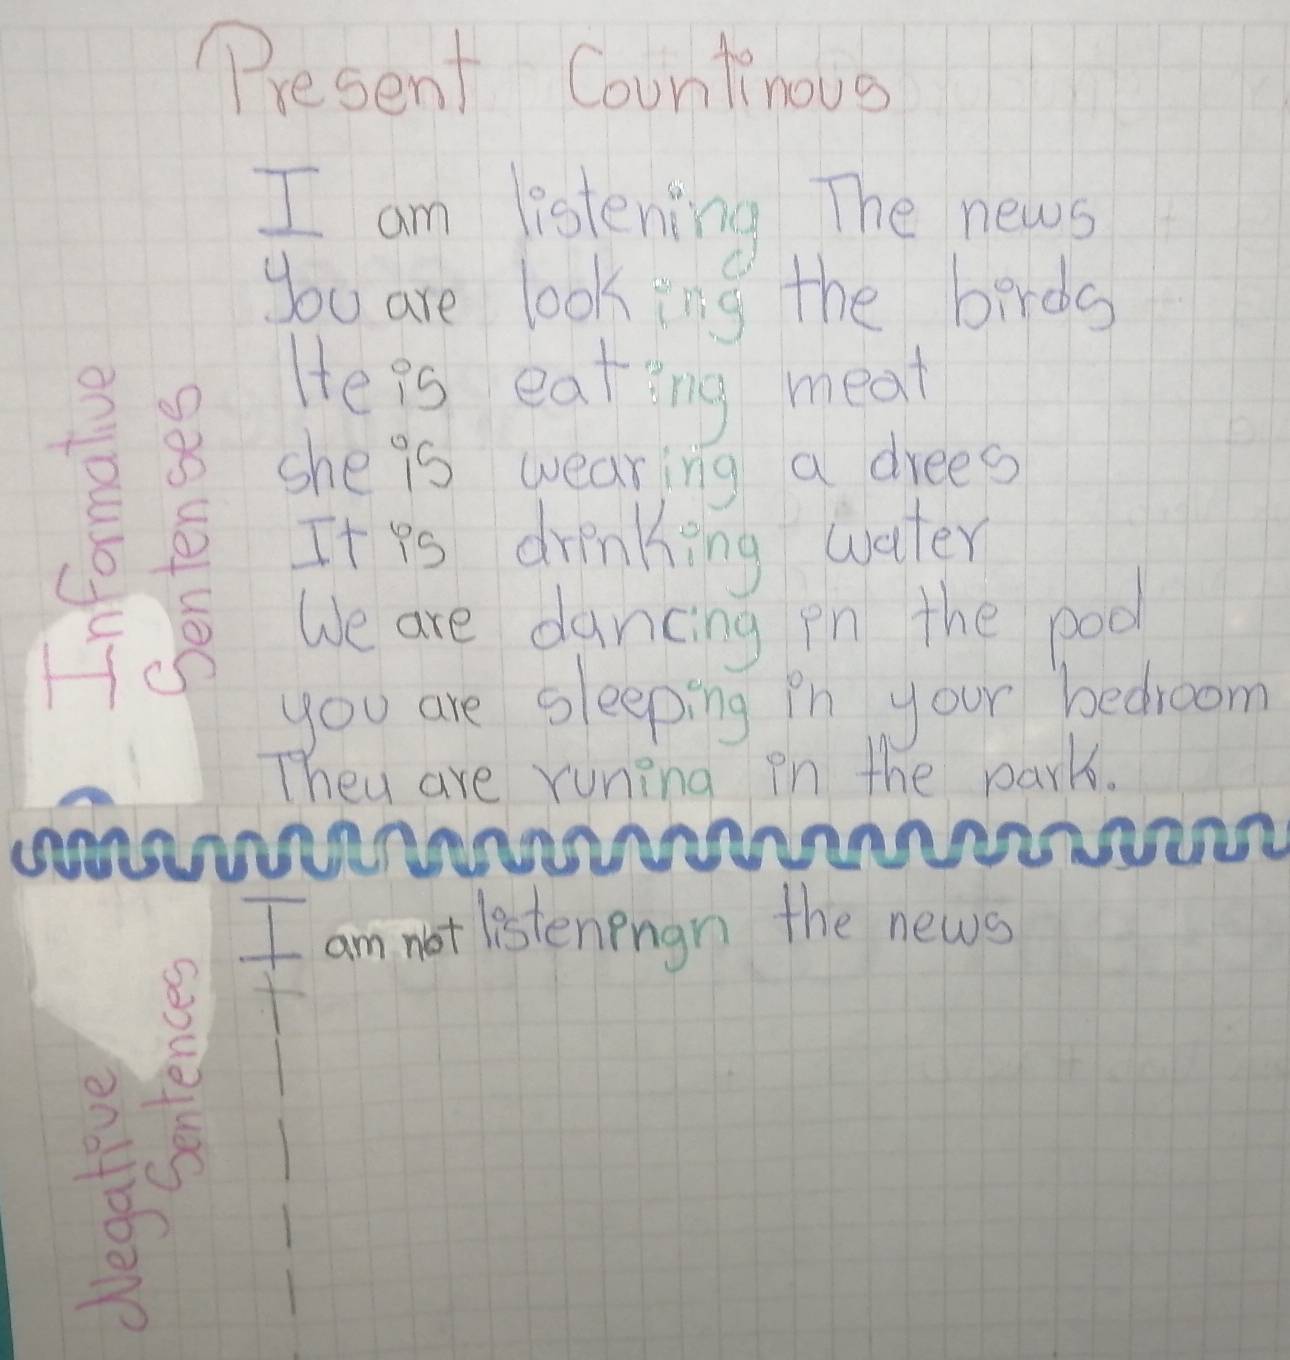 Present Countinous
I am listening The news
You are looking the birds
He is eating meat
she is wearing a drees
It is drinking water
We are dancing in the pool
you are sleeping in your bedroom
They are runing in the park.
Informative
Sentenses
I am not listeningn the news
Negative
Sentences